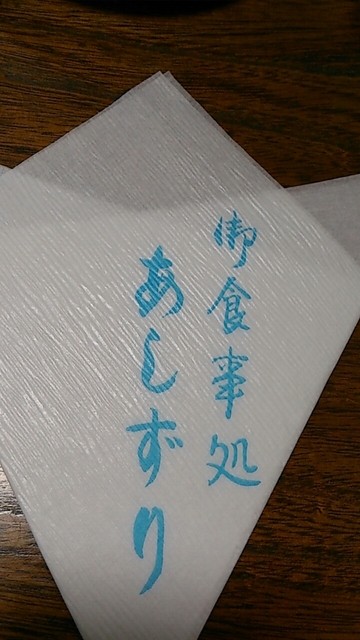 御食事処
あしずり